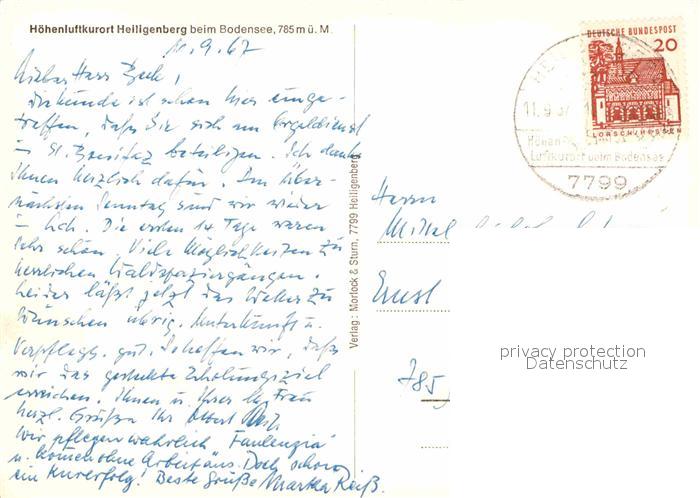 Höhenluftkurort Heiligenberg beim Bodensee, 785 m ü. M.
11.9.67
Lieber Herr Beck,
die Kunde ist schon hier einge-
troffen, daß Sie sich am Orgeldienst
in St. Bonifaz beteiligen. Ich danke
Ihnen herzlich dafür. Am über-
nächsten Sonntag sind wir wieder
in Lch. Die ersten 14 Tage waren
sehr schön. Viele Möglichkeiten zu
herrlichen Waldspaziergängen.
Leider läßt jetzt das Wetter zu
wünschen übrig. Unterkunft u.
Verpflegg. gut. So hoffen wir, daß
wir das gesteckte Erholungsziel
erreichen. Ihnen u. Ihrer lb. Frau
herzl. Grüße Ihr Albert Reiß
Wir pflegen wahrlich "Faulenzia"
u. kommen ohne Arbeit aus. Doch schon
ein Kurerfolg! Beste Grüße Martha Reiß.
Verlag: Morlock & Sturn, 7799 Heiligenberg
DEUTSCHE BUNDESPOST
20
LORSCH/HESSEN
11.9.67
Höhen-
Luftkurort beim Bodensee
7799
Herrn
Ernst
785
privacy protection
Datenschutz